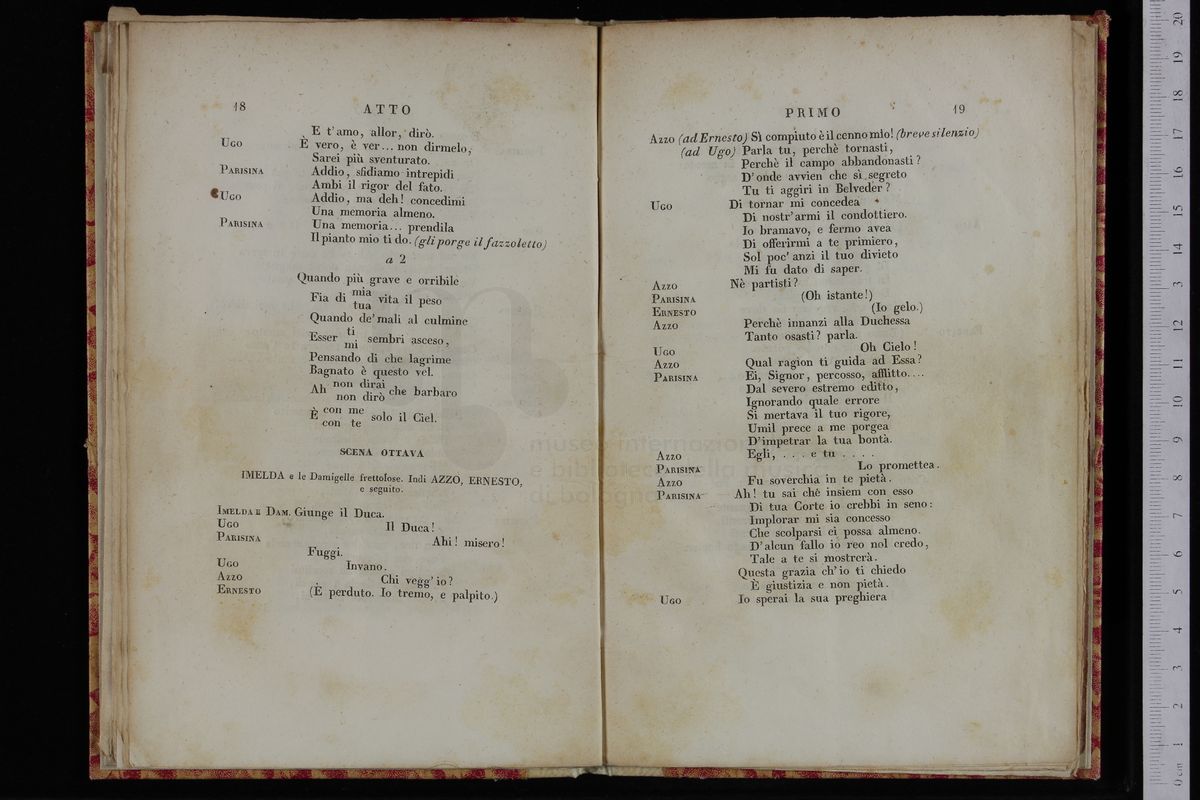 18 ATTO
E t'amo, allor, dirò.
Ugo È vero, è ver... non dirmelo,
Sarei più sventurato.
Parisina Addio, sfidiamo intrepidi
Ambi il rigor del fato.
Ugo Addio, ma deh! concedimi
Una memoria almeno.
Parisina Una memoria... prendila
Il pianto mio ti do. (gli porge il fazzoletto)
a 2
Quando più grave e orribile
Fia di mia tua vita il peso
Quando de' mali al culmine
Esser ti mi sembri asceso,
Pensando di che lagrime
Bagnato è questo vel.
Ah non dirai non dirò che barbaro
È con me con te solo il Ciel.
SCENA OTTAVA
IMELDA e le Damigelle frettolose. Indi AZZO, ERNESTO,
e seguito.
Imelda e Dam. Giunge il Duca.
Ugo Il Duca!
Parisina Ahi! misero!
Fuggi.
Ugo Invano.
Azzo Chi vegg' io?
Ernesto (È perduto. Io tremo, e palpito.)
PRIMO 19
Azzo (ad Ernesto) Sì compiuto è il cenno mio! (breve silenzio)
(ad Ugo) Parla tu, perchè tornasti,
Perchè il campo abbandonasti?
D'onde avvien che sì segreto
Tu ti aggiri in Belveder?
Ugo Di tornar mi concedea
Di nostr'armi il condottiero.
Io bramavo, e fermo avea
Di offerirmi a te primiero,
Sol poc' anzi il tuo divieto
Mi fu dato di saper.
Azzo Nè partisti?
Parisina (Oh istante!)
Ernesto (Io gelo.)
Azzo Perchè innanzi alla Duchessa
Tanto osasti? parla.
Ugo Oh Cielo!
Azzo Qual ragion ti guida ad Essa?
Parisina Ei, Signor, percosso, afflitto....
Dal severo estremo editto,
Ignorando quale errore
Si mertava il tuo rigore,
Umil prece a me porgea
D'impetrar la tua bontà.
Azzo Egli, . . . e tu . . . .
Parisina Lo promettea.
Azzo Fu soverchia in te pietà.
Parisina Ah! tu sai chè insiem con esso
Di tua Corte io crebbi in seno:
Implorar mi sia concesso
Che scolparsi ei possa almeno.
D'alcun fallo io reo nol credo,
Tale a te si mostrerà.
Questa grazia ch'io ti chiedo
È giustizia e non pietà.
Ugo Io sperai la sua preghiera